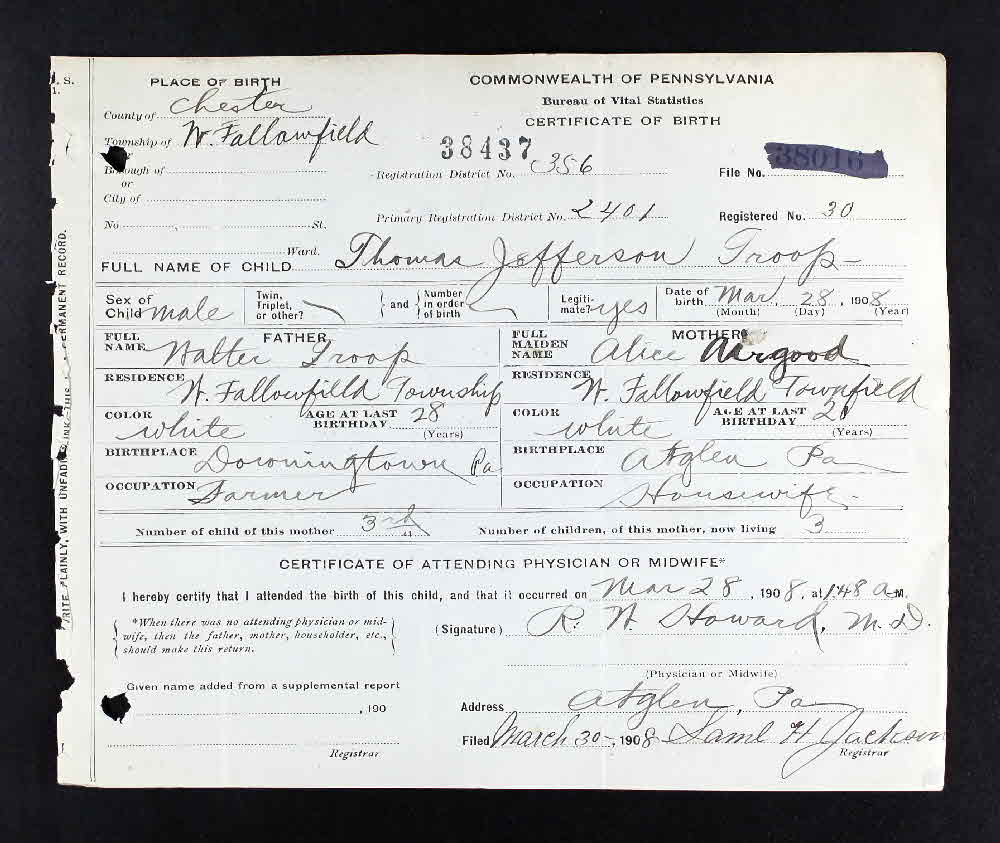 PLACE OF BIRTH
County of Chester
Township of W. Fallowfield
or
Borough of
or
City of
No. , St.
Ward.
COMMONWEALTH OF PENNSYLVANIA
Bureau of Vital Statistics
CERTIFICATE OF BIRTH
38437
Registration District No. 356
File No. 38016
Primary Registration District No. 2401
Registered No. 30
FULL NAME OF CHILD Thomas Jefferson Troop
Sex of Child male
Twin, Triplet, or other?
and Number in order of birth
Legiti- mate? yes
Date of birth Mar 28, 1908
(Month) (Day) (Year)
FATHER
FULL NAME Walter Troop
RESIDENCE W. Fallowfield Township
COLOR white
AGE AT LAST BIRTHDAY 28
(Years)
BIRTHPLACE Downingtown Pa
OCCUPATION Farmer
MOTHER
FULL MAIDEN NAME Alice Airgood
RESIDENCE W. Fallowfield Townfield
COLOR white
AGE AT LAST BIRTHDAY
(Years)
BIRTHPLACE Atglen Pa
OCCUPATION Housewife
Number of child of this mother 3rd
Number of children, of this mother, now living 3
CERTIFICATE OF ATTENDING PHYSICIAN OR MIDWIFE*
I hereby certify that I attended the birth of this child, and that it occurred on Mar 28, 1908, at 1.48 A M.
*When there was no attending physician or mid-
wife, then the father, mother, householder, etc.,
should make this return.
(Signature) R. W. Howard, M.D.
(Physician or Midwife)
Given name added from a supplemental report
, 190
Registrar
Address Atglen, Pa
Filed March 30, 1908 Saml H Jackson
Registrar
WRITE PLAINLY, WITH UNFADING INK—THIS PERMANENT RECORD.